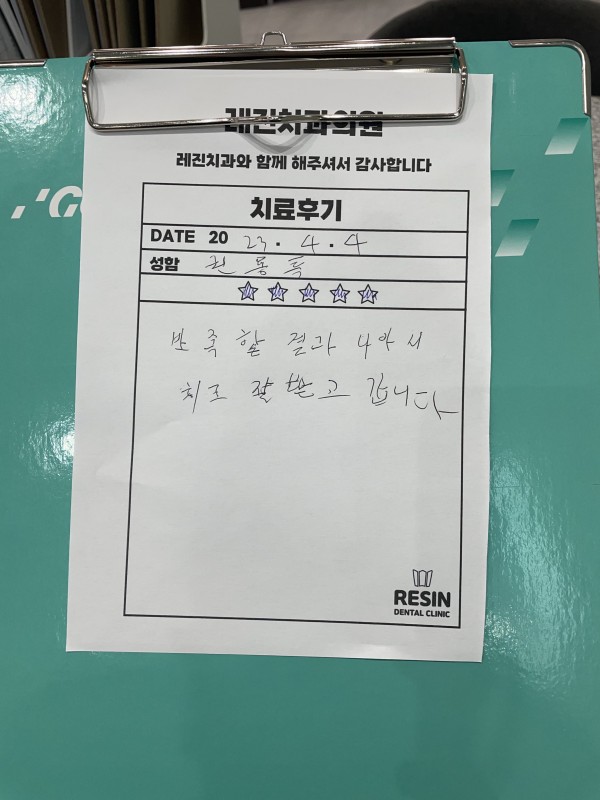 레진치과의원
레진치과와 함께 해주셔서 감사합니다
치료후기
DATE 20 23. 4. 4
성함 권동특
만족할 결과 나아서
치료 잘 받고 갑니다
RESIN
DENTAL CLINIC